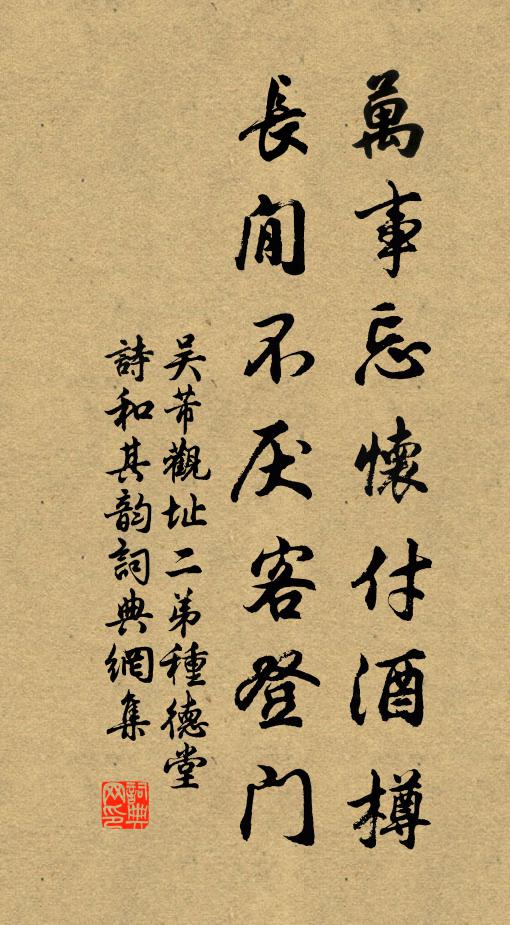 萬事忘懷付酒樽
長閒不厌客登門
吴芾觀址二弟種德堂
詩和其韵詞典網集
詞典网印